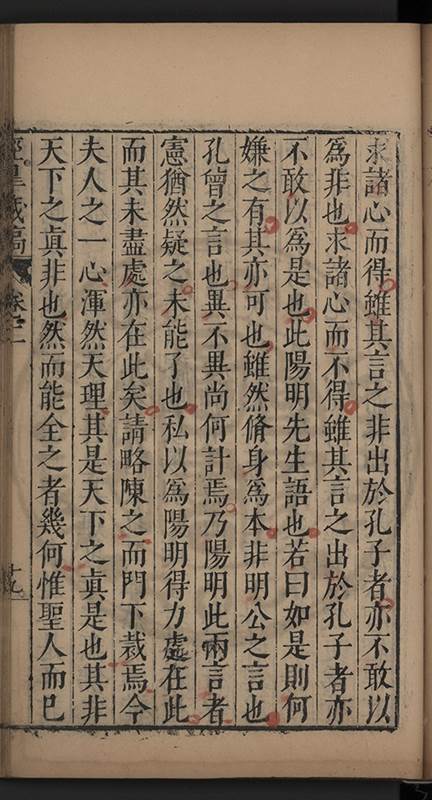 求諸心而得雖其言之非出於孔子者亦不敢以
為非也求諸心而不得雖其言之出於孔子者亦
不敢以為是也此陽明先生語也若曰如是則何
嫌之有其亦可也雖然脩身為本非明公之言也
孔曾之言也異不異尚何計焉乃陽明此兩言者
憲猶然疑之未能了也私以為陽明得力處在此
而其未盡處亦在此矣請略陳之而門下裁焉今
夫人之一心渾然天理其是天下之真是也其非
天下之真非也然而能全之者幾何惟聖人而已
涇臯藏稿 卷之二 十九